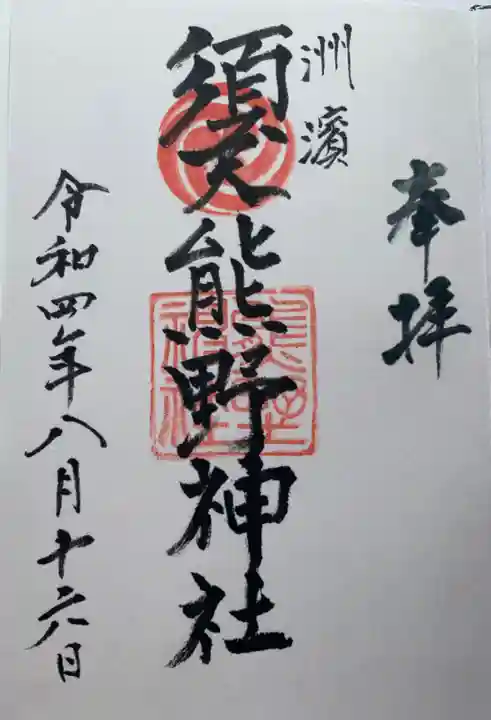 奉拝
洲濱
須天熊野神社
令和四年八月十六日